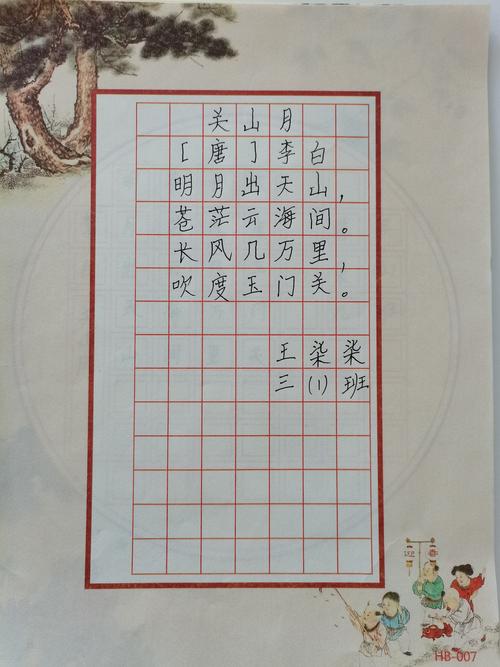 关山月
[唐]李白
明月出天山，
苍茫云海间。
长风几万里，
吹度玉门关。
王染柒
三(1)班
迎春
HB-007